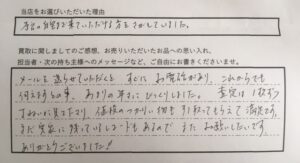 当店をお選びいただいた理由
本当の自宅まで来ていただける方をさがしていました。
買取に関しましてのご感想、お売りいただいたお品への思い入れ、
担当者・次の持ち主様へのメッセージなど、ご自由にお書きくださいませ。
メールを送らせていただくと すぐに お電話があり、これからでも
伺えますとの事、あまりの早さにびっくりしました。査定は1枚ずつ
丁ねいに見て下さり、値段のつかない物も引き取ってもらえて満足です。
まだ実家に残っているレコードもあるので また お願いしたいです
ありがとうございました!!